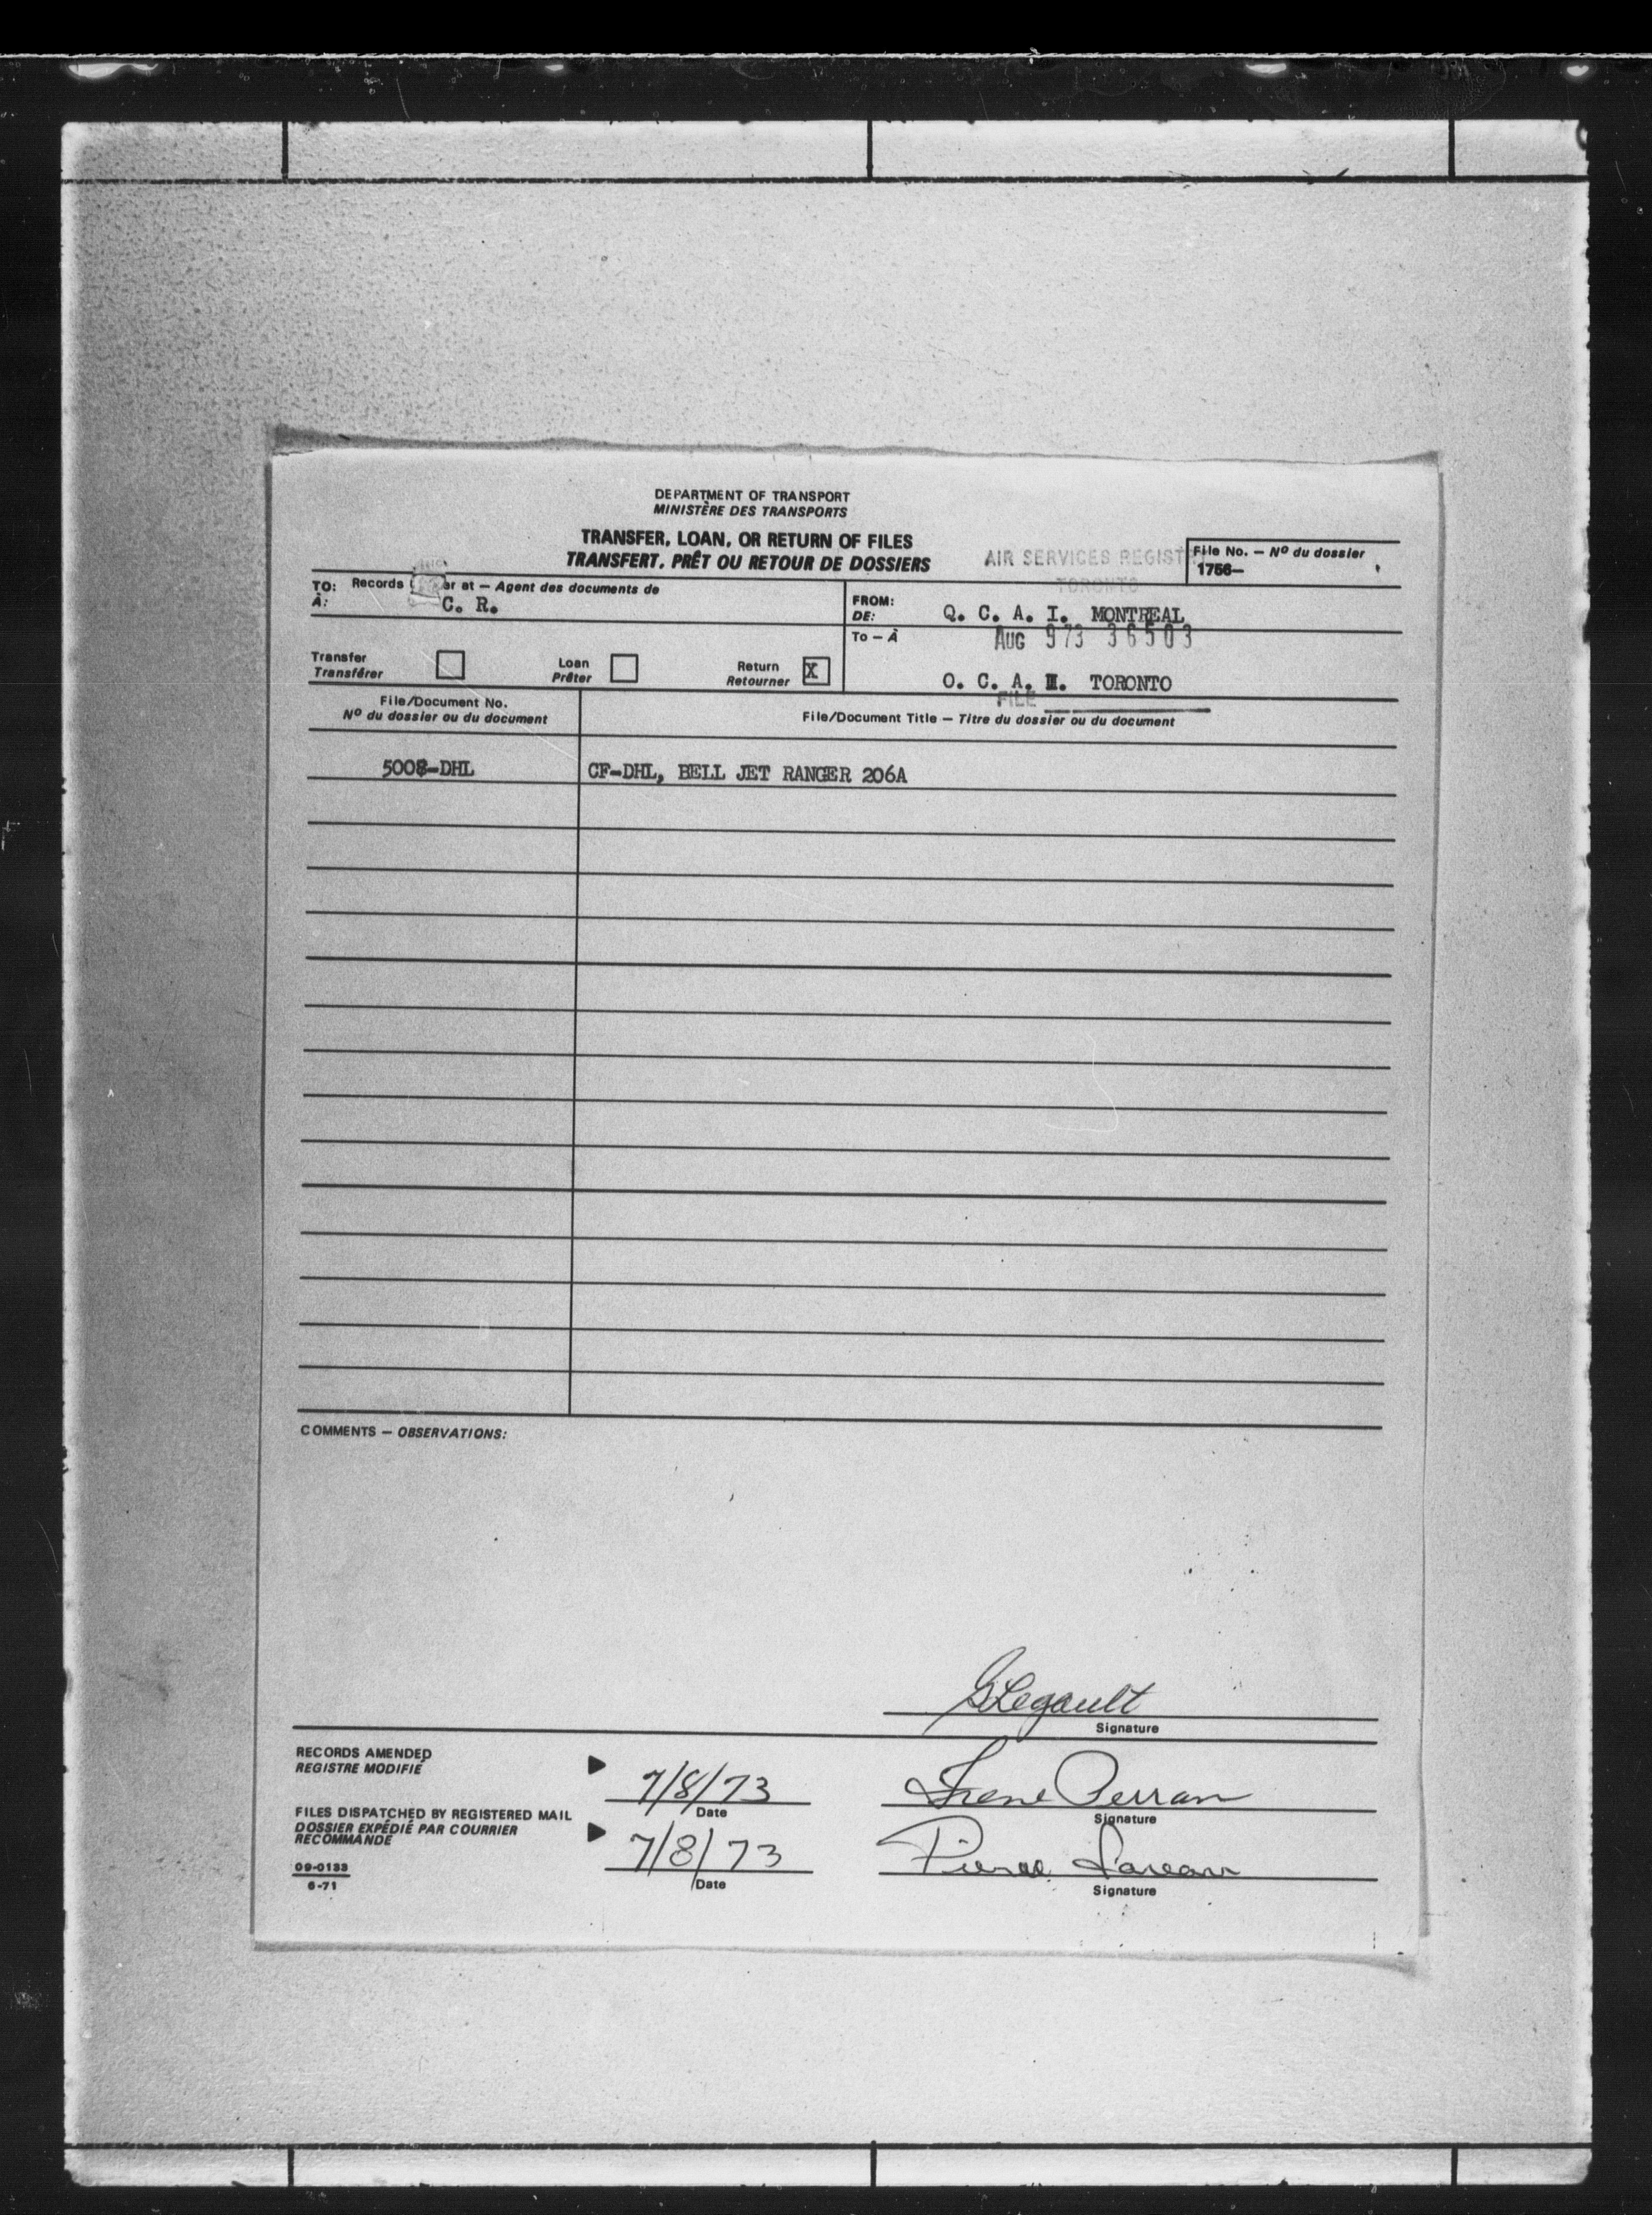 DEPARTMENT OF TRANSPORT
MINISTÈRE DES TRANSPORTS
TRANSFER, LOAN, OR RETURN OF FILES
TRANSFERT, PRÊT OU RETOUR DE DOSSIERS
AIR SERVICES REGIST
TORONTO
File No. — Nº du dossier
1756—
TO: Records er at — Agent des documents de
À: C. R.
FROM:
DE: Q. C. A. I. MONTREAL
To — À
AUG 9 73 36503
Transfer
Transférer
Loan
Prêter
Return
Retourner X
O. C. A. TORONTO
FILE
File/Document No.
Nº du dossier ou du document
File/Document Title — Titre du dossier ou du document
5008-DHL CF-DHL, BELL JET RANGER 206A
COMMENTS — OBSERVATIONS:
GLegault
Signature
RECORDS AMENDED
REGISTRE MODIFIÉ
7/8/73
Date
Irene Perran
Signature
FILES DISPATCHED BY REGISTERED MAIL
DOSSIER EXPÉDIÉ PAR COURRIER
RECOMMANDÉ
7/8/73
Date
Pierre
Signature
09-0133
6-71